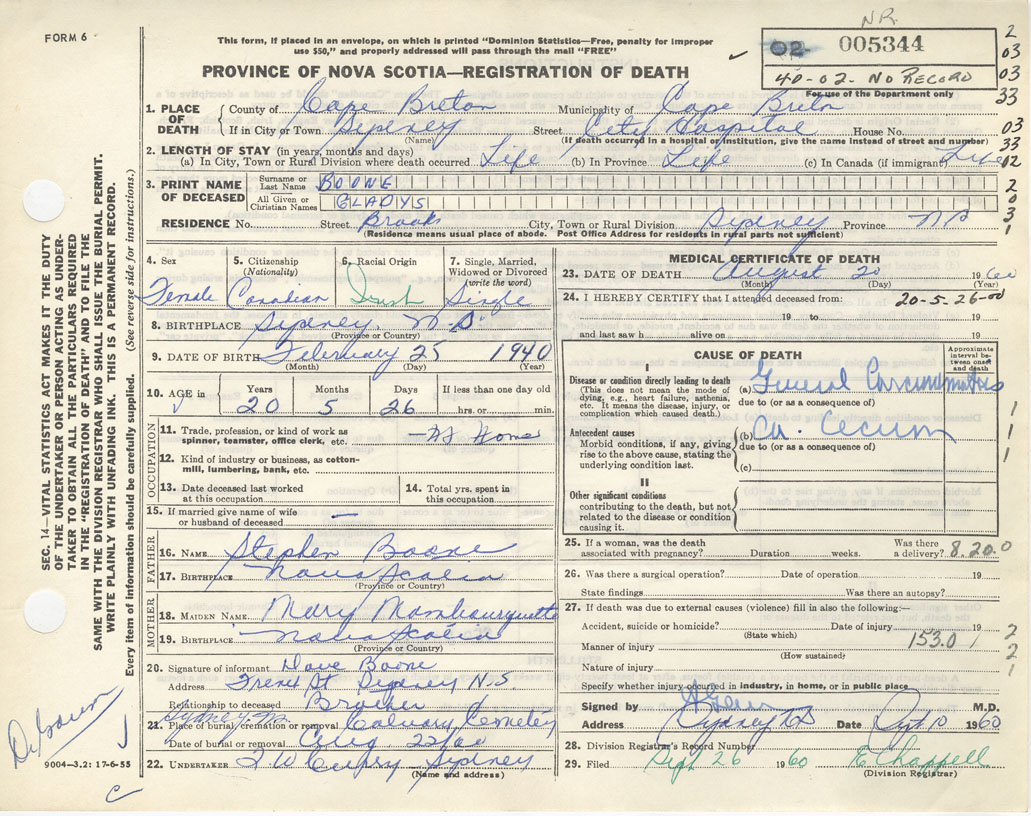 FORM 6
This form, if placed in an envelope, on which is printed "Dominion Statistics—Free, penalty for improper
use $50," and properly addressed will pass through the mail "FREE"
N.R.
02- 005344
40-02- No RECORD
For use of the Department only
PROVINCE OF NOVA SCOTIA—REGISTRATION OF DEATH
2
03
03
33
03
33
02
2
0
3
1
1. PLACE OF DEATH
County of Cape Breton Municipality of Cape Breton
If in City or Town Sydney Street City Hospital House No.
(Name) (If death occurred in a hospital or institution, give the name instead of street and number)
2. LENGTH OF STAY (in years, months and days)
(a) In City, Town or Rural Division where death occurred Life (b) In Province Life (c) In Canada (if immigrant) Life
3. PRINT NAME OF DECEASED
Surname or Last Name BOONE
All Given or Christian Names GLADYS
RESIDENCE No. Street Brook City, Town or Rural Division Sydney Province NS
(Residence means usual place of abode. Post Office Address for residents in rural parts not sufficient)
4. Sex
Female
5. Citizenship
(Nationality)
Canadian
6. Racial Origin
Irish
7. Single, Married,
Widowed or Divorced
(write the word)
Single
8. BIRTHPLACE Sydney, N.S.
(Province or Country)
9. DATE OF BIRTH February 25 1940
(Month) (Day) (Year)
10. AGE in
Years Months Days If less than one day old
20 5 26 hrs. or min.
OCCUPATION
11. Trade, profession, or kind of work as
spinner, teamster, office clerk, etc. At Home
12. Kind of industry or business, as cotton-
mill, lumbering, bank, etc.
13. Date deceased last worked
at this occupation
14. Total yrs. spent in
this occupation
15. If married give name of wife
or husband of deceased —
FATHER
16. NAME Stephen Boone
17. BIRTHPLACE Nova Scotia
(Province or Country)
MOTHER
18. MAIDEN NAME Mary Mombourquette
19. BIRTHPLACE Nova Scotia
(Province or Country)
20. Signature of informant Dave Boone
Address St. Sydney N.S.
Relationship to deceased Brother
Sydney
21. Place of burial, cremation or removal Calvary Cemetery
Date of burial or removal Aug. 22/60
22. UNDERTAKER T W Curry Sydney
(Name and address)
MEDICAL CERTIFICATE OF DEATH
23. DATE OF DEATH August 20 1960
(Month) (Day) (Year)
24. I HEREBY CERTIFY that I attended deceased from: 20-5-26-00
19 to 19
and last saw h alive on 19
CAUSE OF DEATH
Approximate
interval be-
tween onset
and death
I
Disease or condition directly leading to death
(This does not mean the mode of
dying, e.g., heart failure, asthenia,
etc. It means the disease, injury, or
complication which caused death.)
(a) General Carcinomatosis
due to (or as a consequence of)
Antecedent causes
Morbid conditions, if any, giving
rise to the above cause, stating the
underlying condition last.
(b) Ca. Cecum
due to (or as a consequence of)
(c)
1
1
1
1
II
Other significant conditions
contributing to the death, but not
related to the disease or condition
causing it.
25. If a woman, was the death
associated with pregnancy? Duration weeks. Was there
a delivery? 8.20.0
26. Was there a surgical operation? Date of operation 19
State findings Was there an autopsy?
27. If death was due to external causes (violence) fill in also the following:—
Accident, suicide or homicide? Date of injury 19
(State which)
Manner of injury 153.0
(How sustained)
Nature of injury
2
2
1
Specify whether injury occurred in industry, in home, or in public place
Signed by M.D.
Address Sydney NS Date Sept 10 1960
28. Division Registrar's Record Number
29. Filed Sept 26 1960 E Chappell
(Division Registrar)
SEC. 14—VITAL STATISTICS ACT MAKES IT THE DUTY
OF THE UNDERTAKER OR PERSON ACTING AS UNDER-
TAKER TO OBTAIN ALL THE PARTICULARS REQUIRED
IN THE "REGISTRATION OF DEATH" AND TO FILE THE
SAME WITH THE DIVISION REGISTRAR WHO SHALL ISSUE THE BURIAL PERMIT.
WRITE PLAINLY WITH UNFADING INK. THIS IS A PERMANENT RECORD.
Every item of information should be carefully supplied. (See reverse side for instructions.)
9004-3.2: 17-6-55